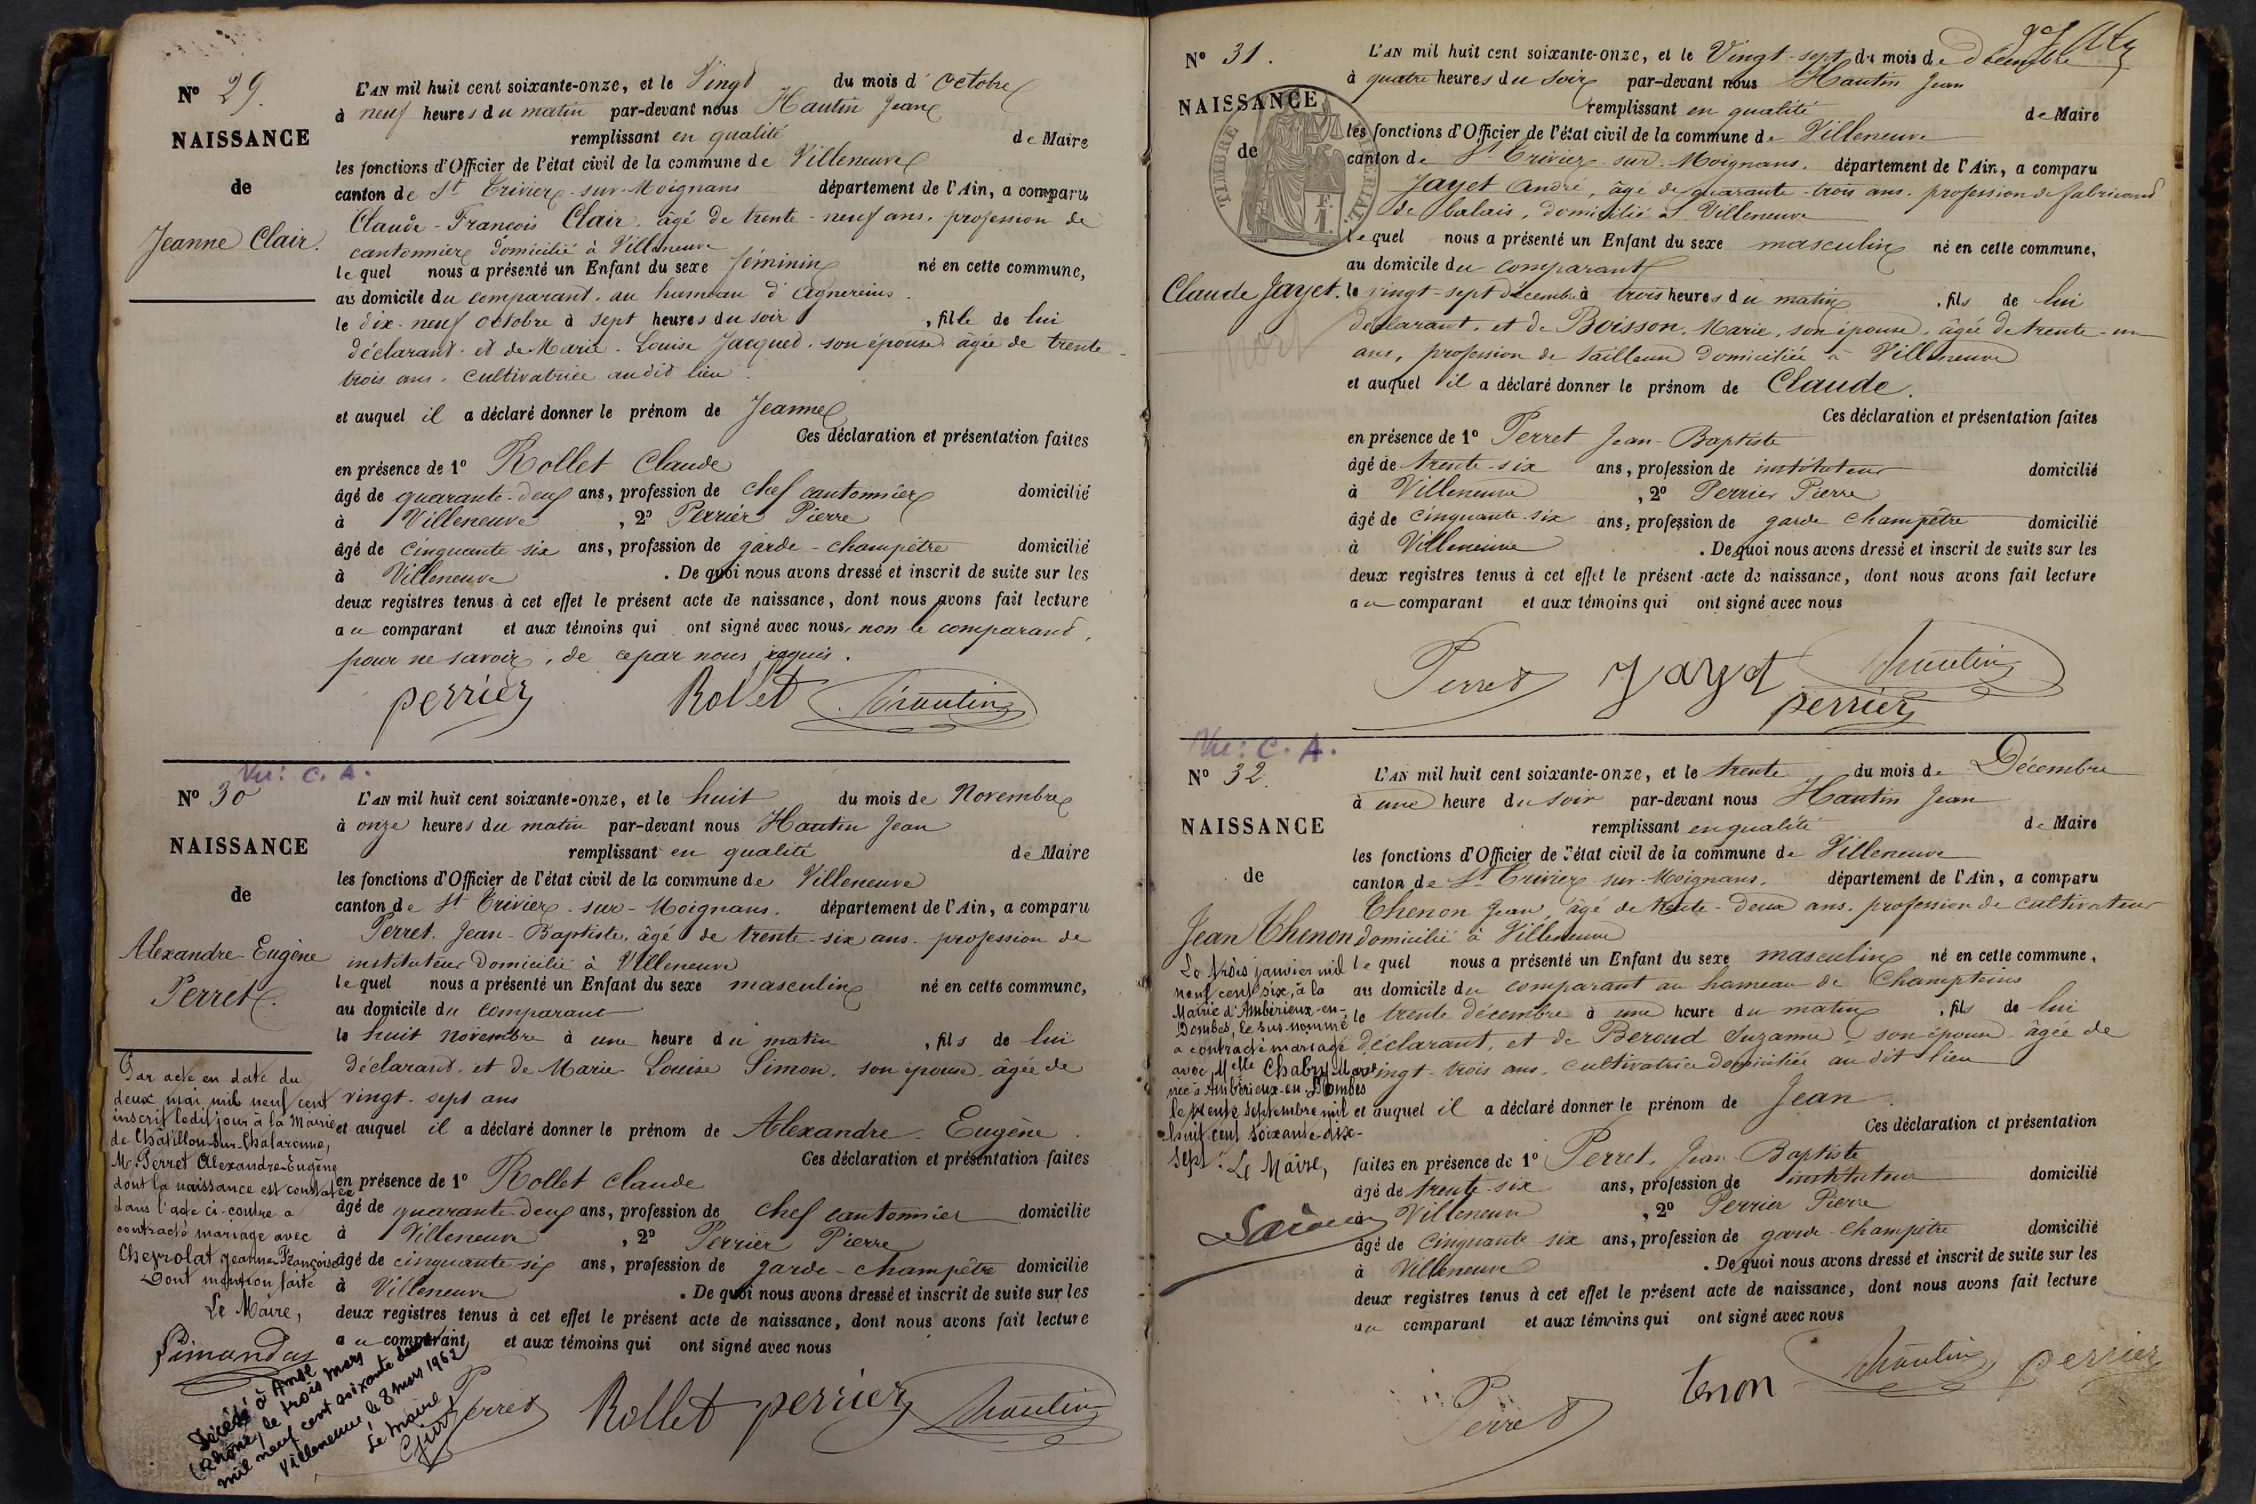 N° 29.
NAISSANCE
de
Jeanne Clair.
L'AN mil huit cent soixante-onze, et le Vingt du mois d'octobre
à neuf heures du matin par-devant nous Hautin Jean
remplissant en qualité de Maire
les fonctions d'Officier de l'état civil de la commune de Villeneuve
canton de St Trivier-sur-Moignans département de l'Ain, a comparu
Claude-François Clair âgé de trente-neuf ans, profession de
cantonnier domicilié à Villeneuve
lequel nous a présenté un Enfant du sexe féminin né en cette commune,
au domicile du comparant, au hameau d'Agnereins.
le dix-neuf octobre à sept heures du soir, fille de lui
déclarant et de Marie-Louise Jacqued, son épouse âgée de trente-
trois ans, cultivatrice audit lieu.
et auquel il a déclaré donner le prénom de Jeanne
Ces déclaration et présentation faites
en présence de 1° Rollet Claude
âgé de quarante-deux ans, profession de chef cantonnier domicilié
à Villeneuve, 2° Perrier Pierre
âgé de cinquante-six ans, profession de garde-champêtre domicilié
à Villeneuve. De quoi nous avons dressé et inscrit de suite sur les
deux registres tenus à cet effet le présent acte de naissance, dont nous avons fait lecture
au comparant et aux témoins qui ont signé avec nous, non le comparant,
pour ne savoir, de ce par nous requis.
perrier Rollet Hautin
Vu: C. A.
N° 30
NAISSANCE
de
Alexandre-Eugène
Perret.
Par acte en date du
deux mai mil neuf cent
inscrit ledit jour à la Mairie
de Châtillon-sur-Chalaronne,
Mr Perret Alexandre-Eugène
dont la naissance est constatée
dans l'acte ci-contre a
contracté mariage avec
Cheyrolat Jeanne-Françoise
Dont mention faite
Le Maire,
Simandas
Décédé à Anse
(Rhône) le trois mars
mil neuf cent soixante deux
Villeneuve le 8 mars 1962
Le Maire
L'AN mil huit cent soixante-onze, et le huit du mois de Novembre
à onze heures du matin par-devant nous Hautin Jean
remplissant en qualité de Maire
les fonctions d'Officier de l'état civil de la commune de Villeneuve
canton de St Trivier-sur-Moignans. département de l'Ain, a comparu
Perret Jean-Baptiste, âgé de trente-six ans, profession de
instituteur domicilié à Villeneuve
lequel nous a présenté un Enfant du sexe masculin né en cette commune,
au domicile du comparant
le huit novembre à une heure du matin, fils de lui
déclarant, et de Marie-Louise Simon, son épouse âgée de
vingt-sept ans
et auquel il a déclaré donner le prénom de Alexandre-Eugène.
Ces déclaration et présentation faites
en présence de 1° Rollet Claude
âgé de quarante-deux ans, profession de chef cantonnier domicilié
à Villeneuve, 2° Perrier Pierre
âgé de cinquante-six ans, profession de garde-champêtre domicilié
à Villeneuve. De quoi nous avons dressé et inscrit de suite sur les
deux registres tenus à cet effet le présent acte de naissance, dont nous avons fait lecture
au comparant, et aux témoins qui ont signé avec nous
Perret Rollet perrier Hautin
N° 31.
NAISSANCE
de
TIMBRE IMPERIAL
Claude Jayet.
mort
L'AN mil huit cent soixante-onze, et le Vingt-sept du mois de Décembre
à quatre heures du soir par-devant nous Hautin Jean
remplissant en qualité de Maire
les fonctions d'Officier de l'état civil de la commune de Villeneuve
canton de St Trivier-sur-Moignans. département de l'Ain, a comparu
Jayet André, âgé de quarante-trois ans, profession de fabricant
de balais, domicilié à Villeneuve
lequel nous a présenté un Enfant du sexe masculin né en cette commune,
au domicile du comparant
le vingt-sept décembre à trois heures du matin, fils de lui
déclarant, et de Boisson Marie, son épouse, âgée de trente-un
ans, profession de tailleuse domiciliée à Villeneuve
et auquel il a déclaré donner le prénom de Claude.
Ces déclaration et présentation faites
en présence de 1° Perret Jean-Baptiste
âgé de trente-six ans, profession de instituteur domicilié
à Villeneuve, 2° Perrier Pierre
âgé de cinquante-six ans, profession de garde champêtre domicilié
à Villeneuve. De quoi nous avons dressé et inscrit de suite sur les
deux registres tenus à cet effet le présent acte de naissance, dont nous avons fait lecture
au comparant et aux témoins qui ont signé avec nous
Perret Jayet Hautin
perrier
Vu: C. A.
N° 32.
NAISSANCE
de
Jean Thenon
Le trois janvier mil
neuf cent six, à la
Mairie d'Ambérieux-en-
Dombes, le sus-nommé
a contracté mariage
avec Melle Chabry Marie
née à Ambérieux-en-Dombes
le trente septembre mil
huit cent soixante-dix-
sept. Le Maire,
L'AN mil huit cent soixante-onze, et le trente du mois de Décembre
à une heure du soir par-devant nous Hautin Jean
remplissant en qualité de Maire
les fonctions d'Officier de l'état civil de la commune de Villeneuve
canton de St Trivier-sur-Moignans. département de l'Ain, a comparu
Thenon Jean, âgé de trente-deux ans, profession de cultivateur
domicilié à Villeneuve
lequel nous a présenté un Enfant du sexe masculin né en cette commune,
au domicile du comparant au hameau de Champteins
le trente décembre à une heure du matin, fils de lui
déclarant, et de Beroud Suzanne, son épouse âgée de
vingt-trois ans, cultivatrice domiciliée audit lieu
et auquel il a déclaré donner le prénom de Jean.
Ces déclaration et présentation
faites en présence de 1° Perret, Jean-Baptiste
âgé de trente-six ans, profession de instituteur domicilié
à Villeneuve, 2° Perrier Pierre
âgé de cinquante-six ans, profession de garde-champêtre domicilié
à Villeneuve. De quoi nous avons dressé et inscrit de suite sur les
deux registres tenus à cet effet le présent acte de naissance, dont nous avons fait lecture
au comparant et aux témoins qui ont signé avec nous
Perret tenon Hautin perrier